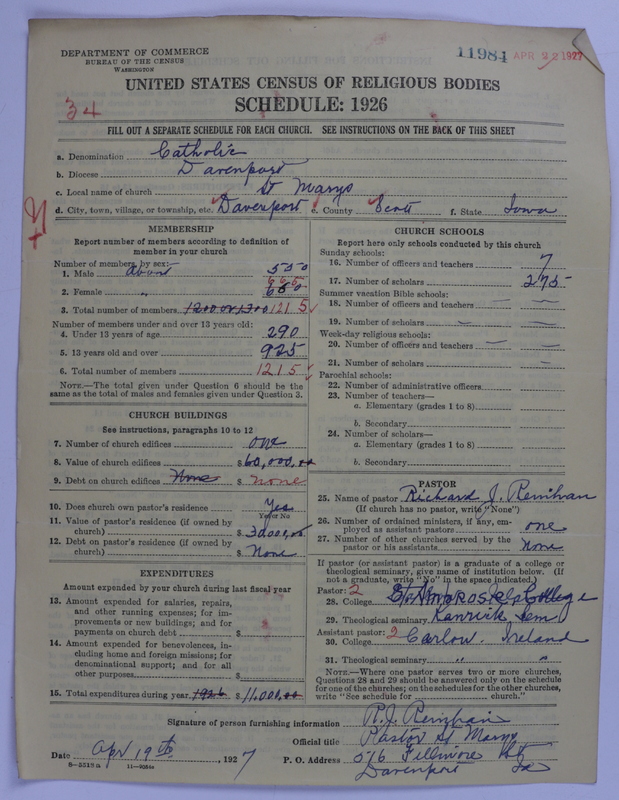 DEPARTMENT OF COMMERCE
BUREAU OF THE CENSUS
WASHINGTON
11984 APR 22 1927
UNITED STATES CENSUS OF RELIGIOUS BODIES
34
SCHEDULE: 1926
FILL OUT A SEPARATE SCHEDULE FOR EACH CHURCH. SEE INSTRUCTIONS ON THE BACK OF THIS SHEET
a. Denomination Catholic
b. Diocese Davenport
c. Local name of church St Marys
d. City, town, village, or township, etc. Davenport e. County Scott f. State Iowa
MEMBERSHIP
Report number of members according to definition of
member in your church
Number of members, by sex:
1. Male About 550
2. Female " 665
3. Total number of members 1200 or 1300 1215
Number of members under and over 13 years old:
4. Under 13 years of age 290
5. 13 years old and over 925
6. Total number of members 1215
NOTE.—The total given under Question 6 should be the
same as the total of males and females given under Question 3.
CHURCH BUILDINGS
See instructions, paragraphs 10 to 12
7. Number of church edifices one
8. Value of church edifices $60,000.00
9. Debt on church edifices None $ none
10. Does church own pastor's residence? Yes
Yes or No
11. Value of pastor's residence (if owned by
church) $
12. Debt on pastor's residence (if owned by
church) $ None
EXPENDITURES
Amount expended by your church during last fiscal year
13. Amount expended for salaries, repairs,
and other running expenses; for im-
provements or new buildings; and for
payments on church debt $
14. Amount expended for benevolences, in-
cluding home and foreign missions; for
denominational support; and for all
other purposes $
15. Total expenditures during year 1926 $11,000.00
CHURCH SCHOOLS
Report here only schools conducted by this church
Sunday schools:
16. Number of officers and teachers 7
17. Number of scholars 275
Summer vacation Bible schools:
18. Number of officers and teachers — —
19. Number of scholars — —
Week-day religious schools:
20. Number of officers and teachers — —
21. Number of scholars — —
Parochial schools:
22. Number of administrative officers
23. Number of teachers—
a. Elementary (grades 1 to 8)
b. Secondary
24. Number of scholars—
a. Elementary (grades 1 to 8)
b. Secondary
PASTOR
25. Name of pastor Richard J. Renihan
(If church has no pastor, write "None")
26. Number of ordained ministers, if any, em-
ployed as assistant pastors one
27. Number of other churches served by the
pastor or his assistants None
If pastor (or assistant pastor) is a graduate of a college or
theological seminary, give name of institution below. (If
not a graduate, write "No" in the space indicated.)
Pastor: 2
28. College St Ambrose College
29. Theological seminary Kenrick Sem
Assistant pastor: 2
30. College Carlow Ireland
31. Theological seminary " "
NOTE.—Where one pastor serves two or more churches,
Questions 28 and 29 should be answered only on the schedule
for one of the churches; on the schedules for the other churches,
write "See schedule for church."
Signature of person furnishing information R. J. Renihan
Official title Pastor St Marys
Date Apr 19th, 1927 P. O. Address 516 Fillmore St
Davenport Ia
8—5519a 11—9064a